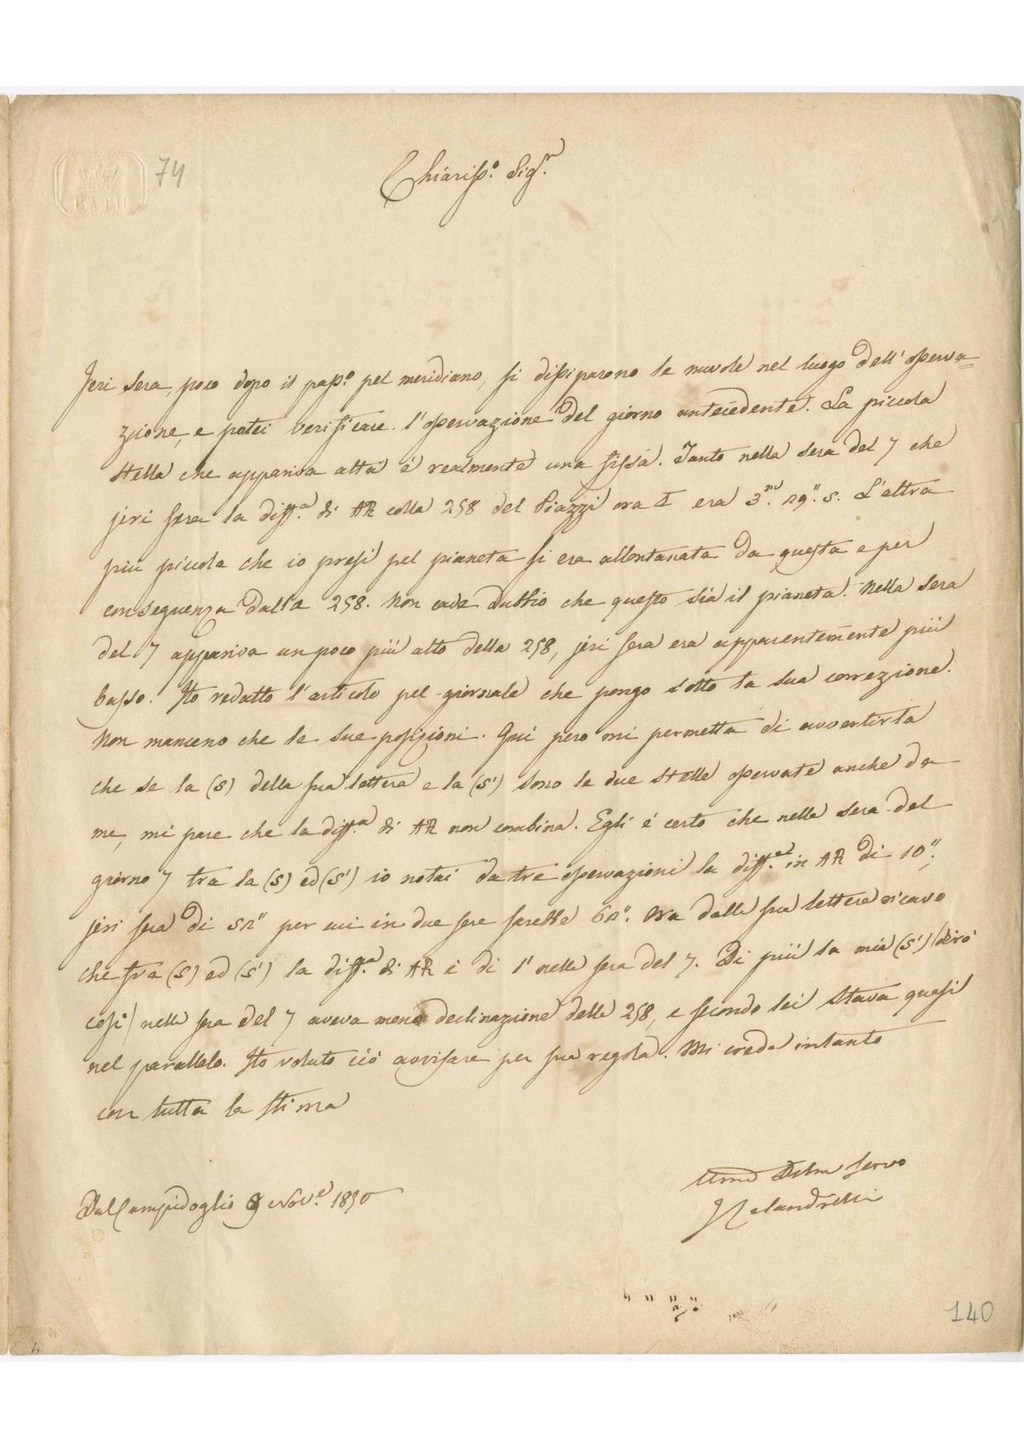 74
Chiariss.º Sig.r
Jeri sera, poco dopo il pass.º pel meridiano, si dissiparono le nuvole nel luogo dell' osserva=
zione, e potei verificare l'osservazione del giorno antecedente. La piccola
stella che appariva alta è realmente una fissa. Tanto nella sera del 7 che
jeri sera la diff.a di AR colla 258 del Piazzi ora I era 3.m 29". 5. L'altra
più piccola che io presi pel pianeta si era allontanata da questa e per
conseguenza dalla 258. Non cade dubbio che questo sia il pianeta. Nella sera
del 7 appariva un poco più alto della 258, jeri sera era apparentemente più
basso. Ho redatto l'articolo pel giornale che pongo sotto la sua correzione.
Non mancano che le sue posizioni. Qui però mi permetta di avvertirla
che se la (s) della sua lettera e la (s') sono le due stelle osservate anche da
me, mi pare che la diff.a di AR non combina. Egli è certo che nella sera del
giorno 7 tra la (s) ed (s') io notai da tre osservazioni la diff.a in AR di 10",
jeri sera di 52" per cui in due sere sarebbe 62". Ora dalla sua lettera ricavo
che tra (s) ed (s') la diff.a di AR è di 1' nella sera del 7. Di più la mia (s') (dirò
così) nella sera del 7 aveva meno declinazione della 258, e secondo lei stava quasi
nel parallelo. Ho voluto ciò avvisare per sua regola. Mi creda intanto
con tutta la stima
Dal Campidoglio 9 Nov.e 1850
Umo Servo
Calandrelli
140